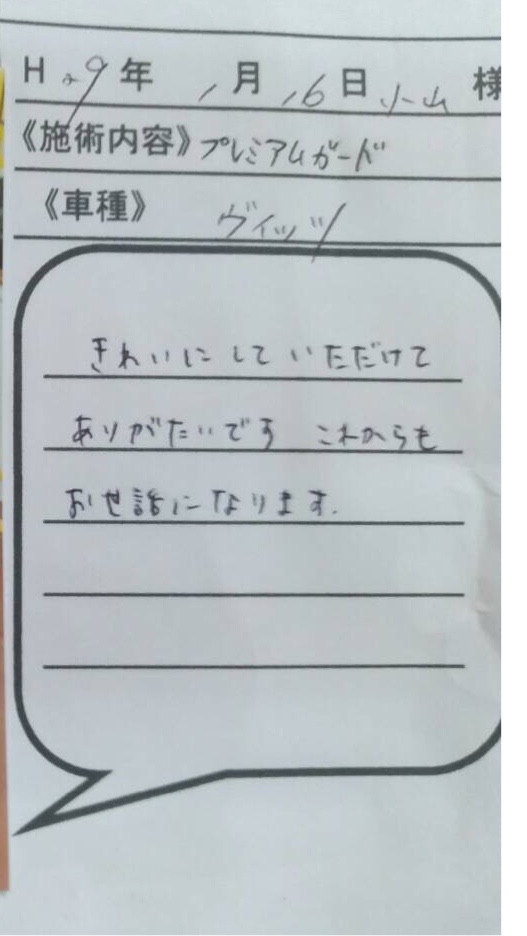 H29年1月16日 小山 様
《施術内容》プレミアムガード
《車種》 ヴィッツ
きれいにしていただけて
ありがたいです これからも
お世話になります.